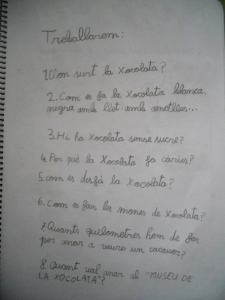 Treballarem:
1.D'on surt la xocolata?
2.Com es fa la xocolata blanca,
negra amb llet amb ametlles...
3.Hi ha xocolata sense sucre?
4.Per què la xocolata fa càries?
5.com es desfà la xocolata?
6.Com es fan les mones de xocolata?
7.Quants quilometres hem de fer
per anar a veure un cacauer?
8.Quant val anar al "MUSEU DE
LA XOCOLATA"?